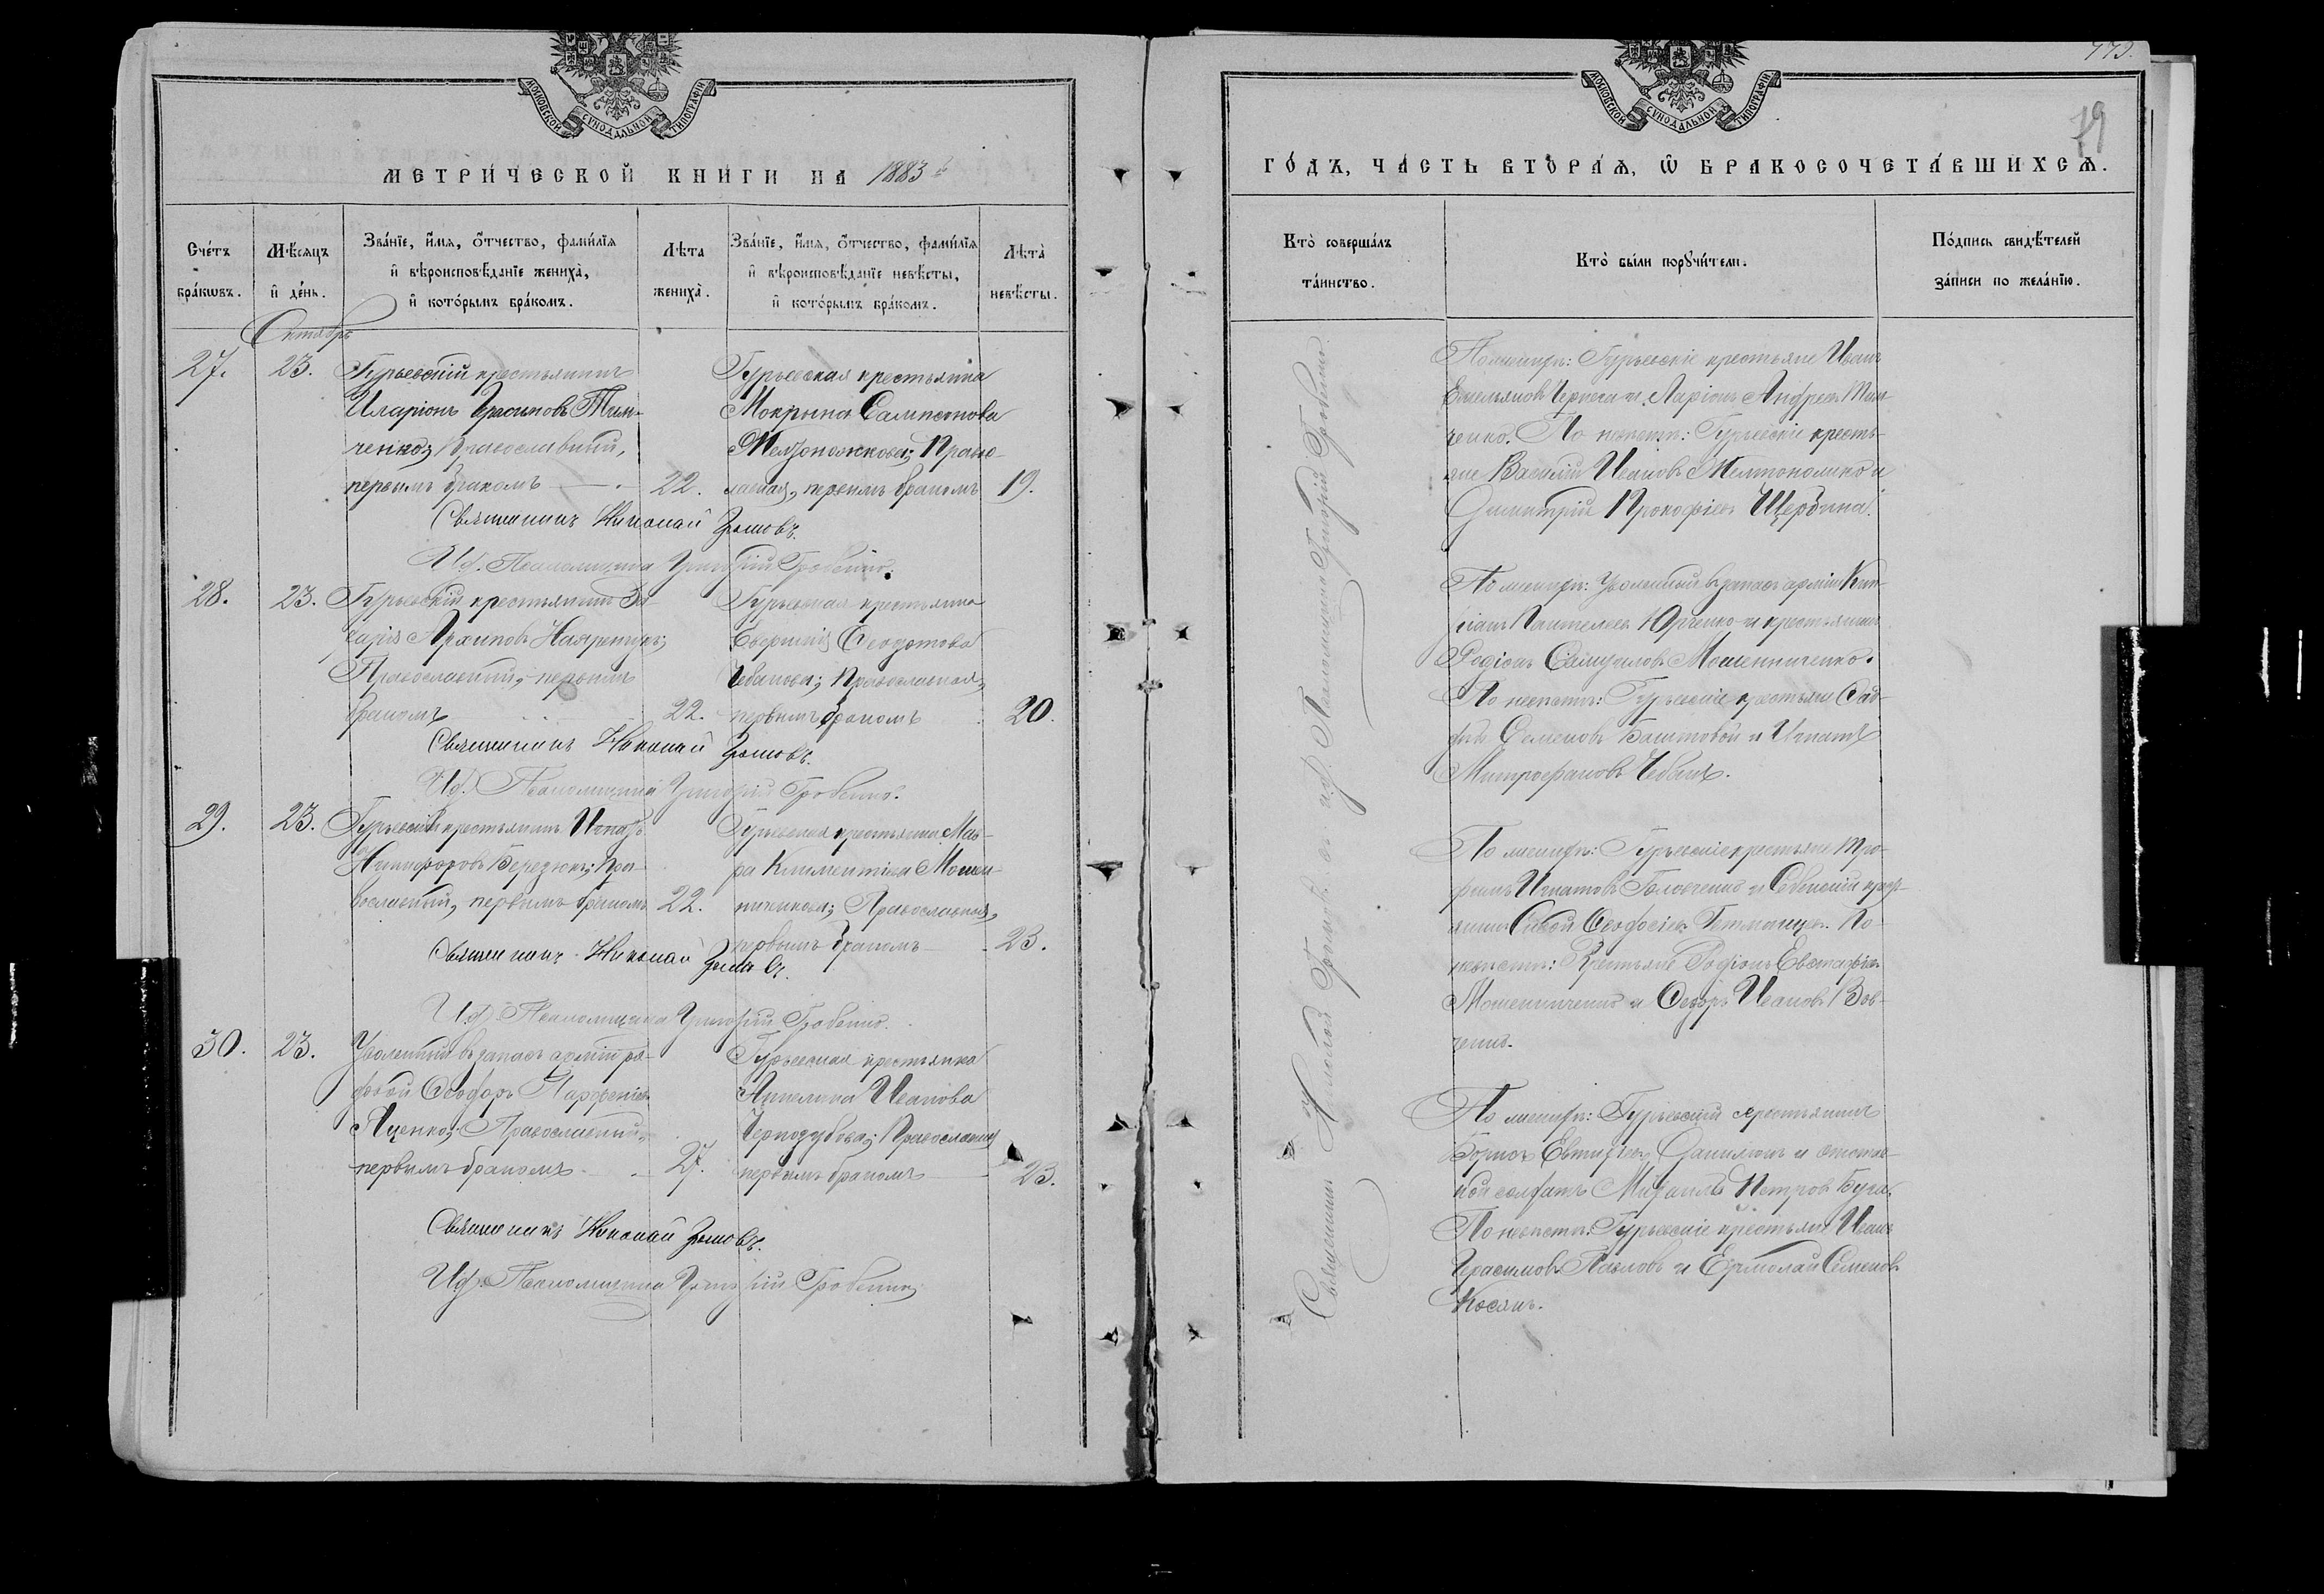 МОСКОВСКОЙ СУНОДАЛЬНОЙ ТИПОГРАФІИ
МЕТРИ́ЧЕСКОЙ КНИГИ НА 1883 й
Сче́тъ бра́кѡвъ.
Мѣ́сяцъ и҆ де́нь.
Зва́нїе, и҆́мя, ѻ҆́тчество, фами́лїя и҆ вѣроисповѣ́данїе жениха̀, и҆ кото́рымъ бра́комъ.
Лѣ́та жениха̀.
Зва́нїе, и҆́мя, ѻ҆́тчество, фами́лїя и҆ вѣроисповѣ́данїе невѣ́сты, и҆ кото́рымъ бра́комъ.
Лѣ́та невѣ́сты.
Октябрь
27. 23.
Гурьевскій крестьянинъ
Иларіонъ Тим-
ченко; Православный,
первымъ бракомъ 22.
Гурьевская крестьянка
Мокрина Сампсонова
Желтоножкова; Право-
славная, первымъ бракомъ 19.
Священникъ Николай
И.д. Псаломщика Григорій
28. 23.
Гурьевскій крестьянинъ За-
харія Архиповъ
Православный, первымъ
бракомъ 22.
Гурьевская крестьянка
Евфимія Ѳеодотова
Чебанова; Православная,
первымъ бракомъ 20.
Священникъ Николай
И.д. Псаломщика Григорій
29. 23.
Гурьевскій крестьянинъ Игнатъ
Никифоровъ Березюкъ; Пра-
вославный, первымъ бракомъ 22.
Гурьевская крестьянка Мав-
ра Климентіева Мошен-
ниченкова; Православная,
первымъ бракомъ 23.
Священникъ Николай
И.д. Псаломщика Григорій
30. 23.
Уволенный въ запасъ арміи ря-
довой Ѳеодоръ Парфеніевъ
Яценко; Православный,
первымъ бракомъ 27.
Гурьевская крестьянка
Акилина Иванова
Чернозубова; Православная
первымъ бракомъ 23.
Священникъ Николай
И.д. Псаломщика Григорій
МОСКОВСКОЙ СУНОДАЛЬНОЙ ТИПОГРАФІИ
79
ГО́ДЪ, ЧА́СТЬ ВТОРА́Я, Ѡ҆ БРАКОСОЧЕТА́ВШИХСЯ.
Кто̀ соверша́лъ та́инство.
Кто̀ бы́ли порꙋчи́тели.
По́дпись свидѣ́телей за́писи по жела́нїю.
Священникъ Николай и и.д. Псаломщика Григорій
По женихѣ: Гурьевскіе крестьяне Иванъ
Емельяновъ и Ларіонъ Андреевъ Тим-
ченко. По невѣстѣ: Гурьевскіе кресть-
яне Василій Ивановъ Желтоножко и
Димитрій Прокофіевъ Щербина.
По женихѣ: Уволенный въ запасъ арміи
Пантелеевъ Юрченко и крестьянинъ
Родіонъ Самуиловъ Мошенниченко.
По невѣстѣ: Гурьевскіе крестьяне
Семеновъ Баштовой и Игнатъ
Митрофановъ Чебанъ.
По женихѣ: Гурьевскіе крестьяне Тро-
фимъ Игнатовъ Головченко и
Савва Ѳеодосіевъ Гетманецъ. По
невѣстѣ: Крестьяне Родіонъ Евстафіевъ
Мошенниченко и Ѳедоръ Ивановъ Вов-
ченко.
По женихѣ: Гурьевскій крестьянинъ
Борисъ Евтихіевъ Данилюкъ и отстав-
ной солдатъ Михаилъ Петровъ Буга.
По невѣстѣ: Гурьевскіе крестьяне Иванъ
Герасимовъ Павловъ и Ермолай Семеновъ
Косякъ.